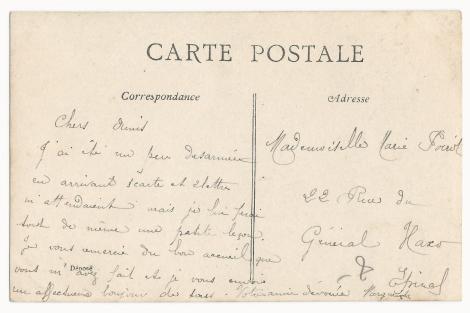 CARTE POSTALE
Correspondance
Adresse
Chers Amis
J'ai été un peu desarmée
en arrivant 1 carte et 2 lettres
m'attendaient mais je lui ferai
tout de même une petite leçon
Je vous remercie du bon accueil que
vous m'avez fait et je vous envoie
un affectueux bonjour de tous. Votre amie dévouée Marguerite
Déposé
Mademoiselle Marie
22 Rue du
Général Haxo
Epinal